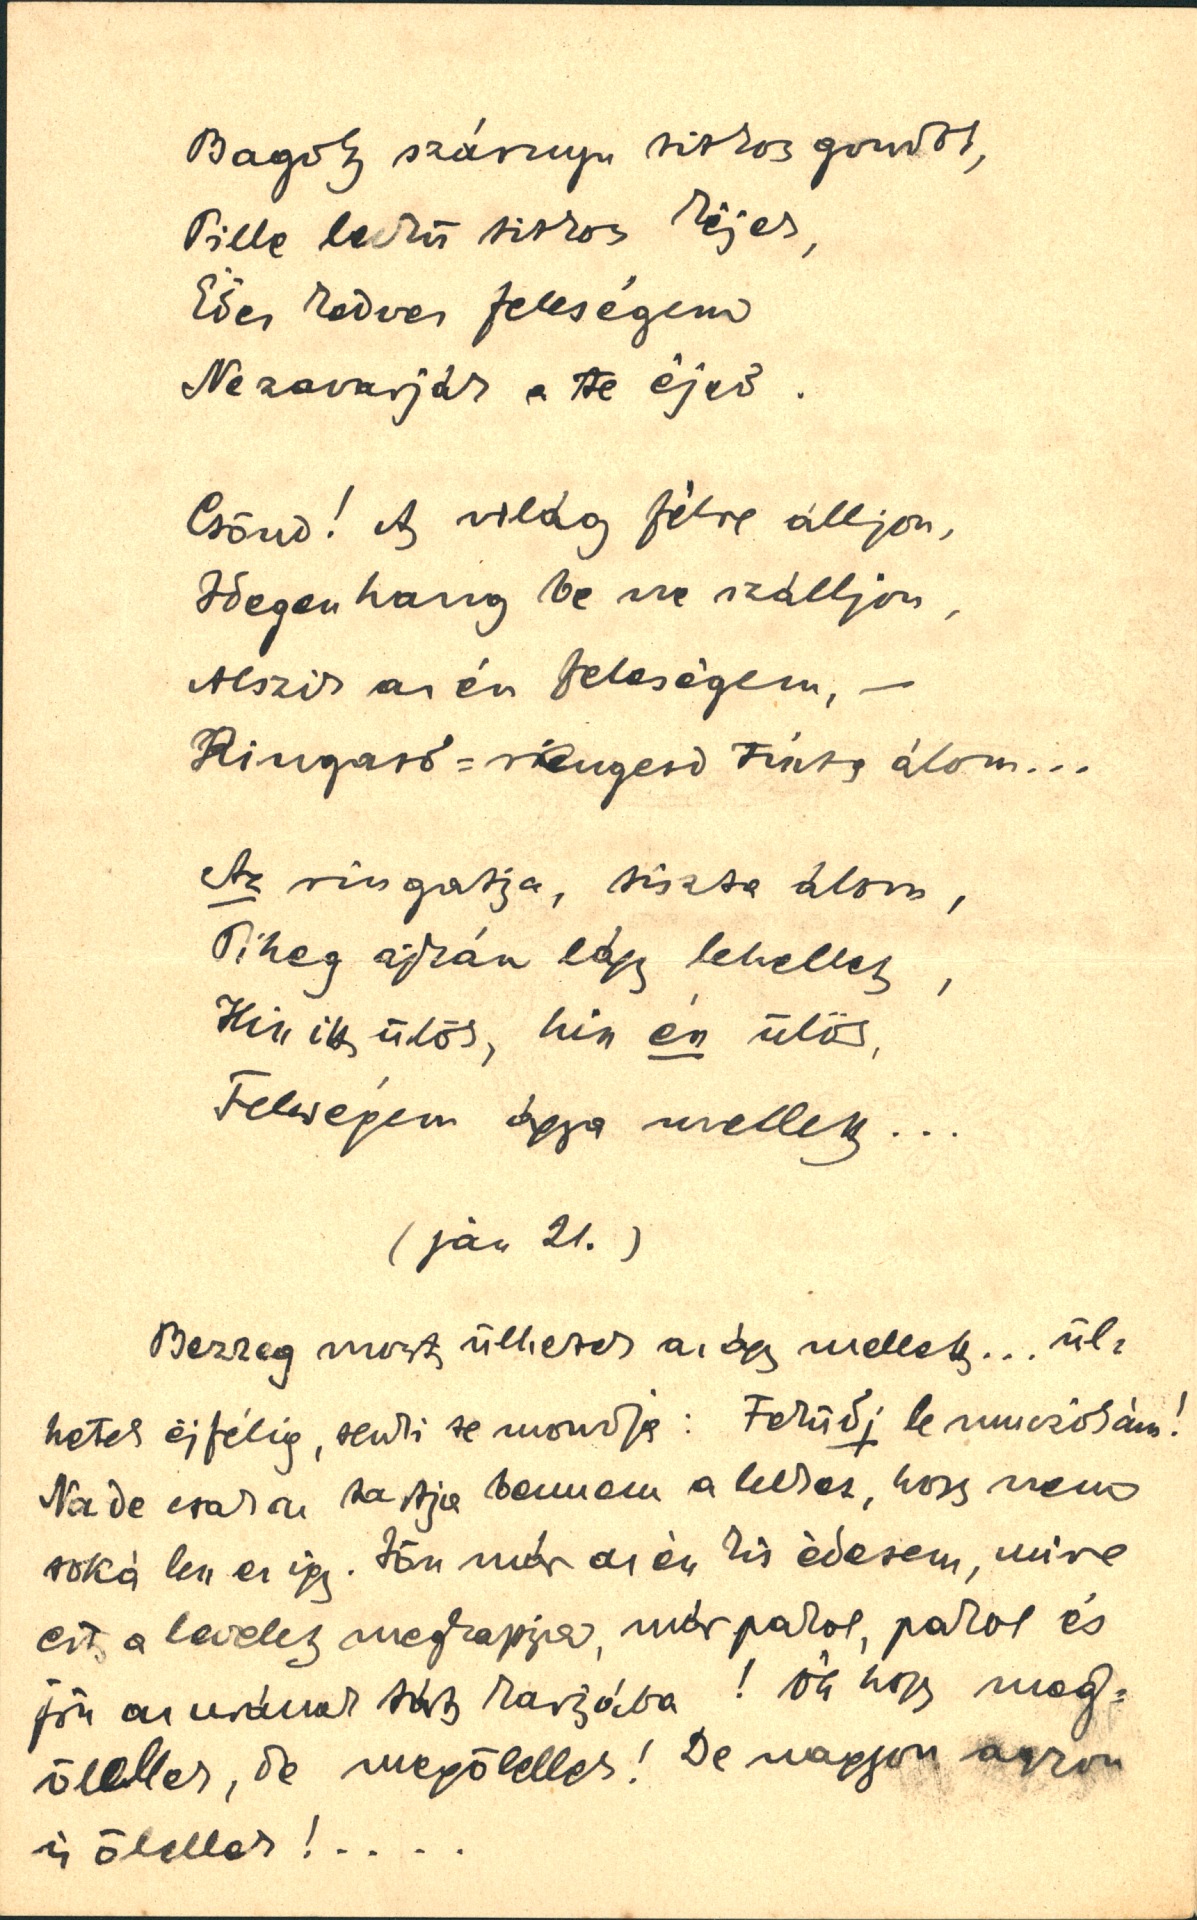 Bagoly szárnyu titkos gondok,
Pille lelkü titkos kéjek,
Édes kedves feleségem
Ne zavarják a te éjed.
Csönd! A világ félre álljon,
Idegen hang be ne szálljon,
Alszik az én feleségem, —
Ringasd=rengesd tiszta álom...
Az ringatja, tiszta álom,
Piheg ajkán lágy lehellet,
Hin itt ülök, hin én ülök,
Feleségem ágya mellett...
(ján 21.)
Bezzeg most ülhetek az ágy mellett... ül-
hetek éjfélig, senki se mondja: Feküdj le muczikám!
Na de csak az tartja bennem a lelket, hogy nem
soká lesz ez igy. Jön már az én kis édesem, mire
ezt a levelet megkapja, már pakol, pakol és
jön az urának tárt karjába! Óh hogy meg-
ölellek, de megölellek! De nagyon agyon
is ölellek!....